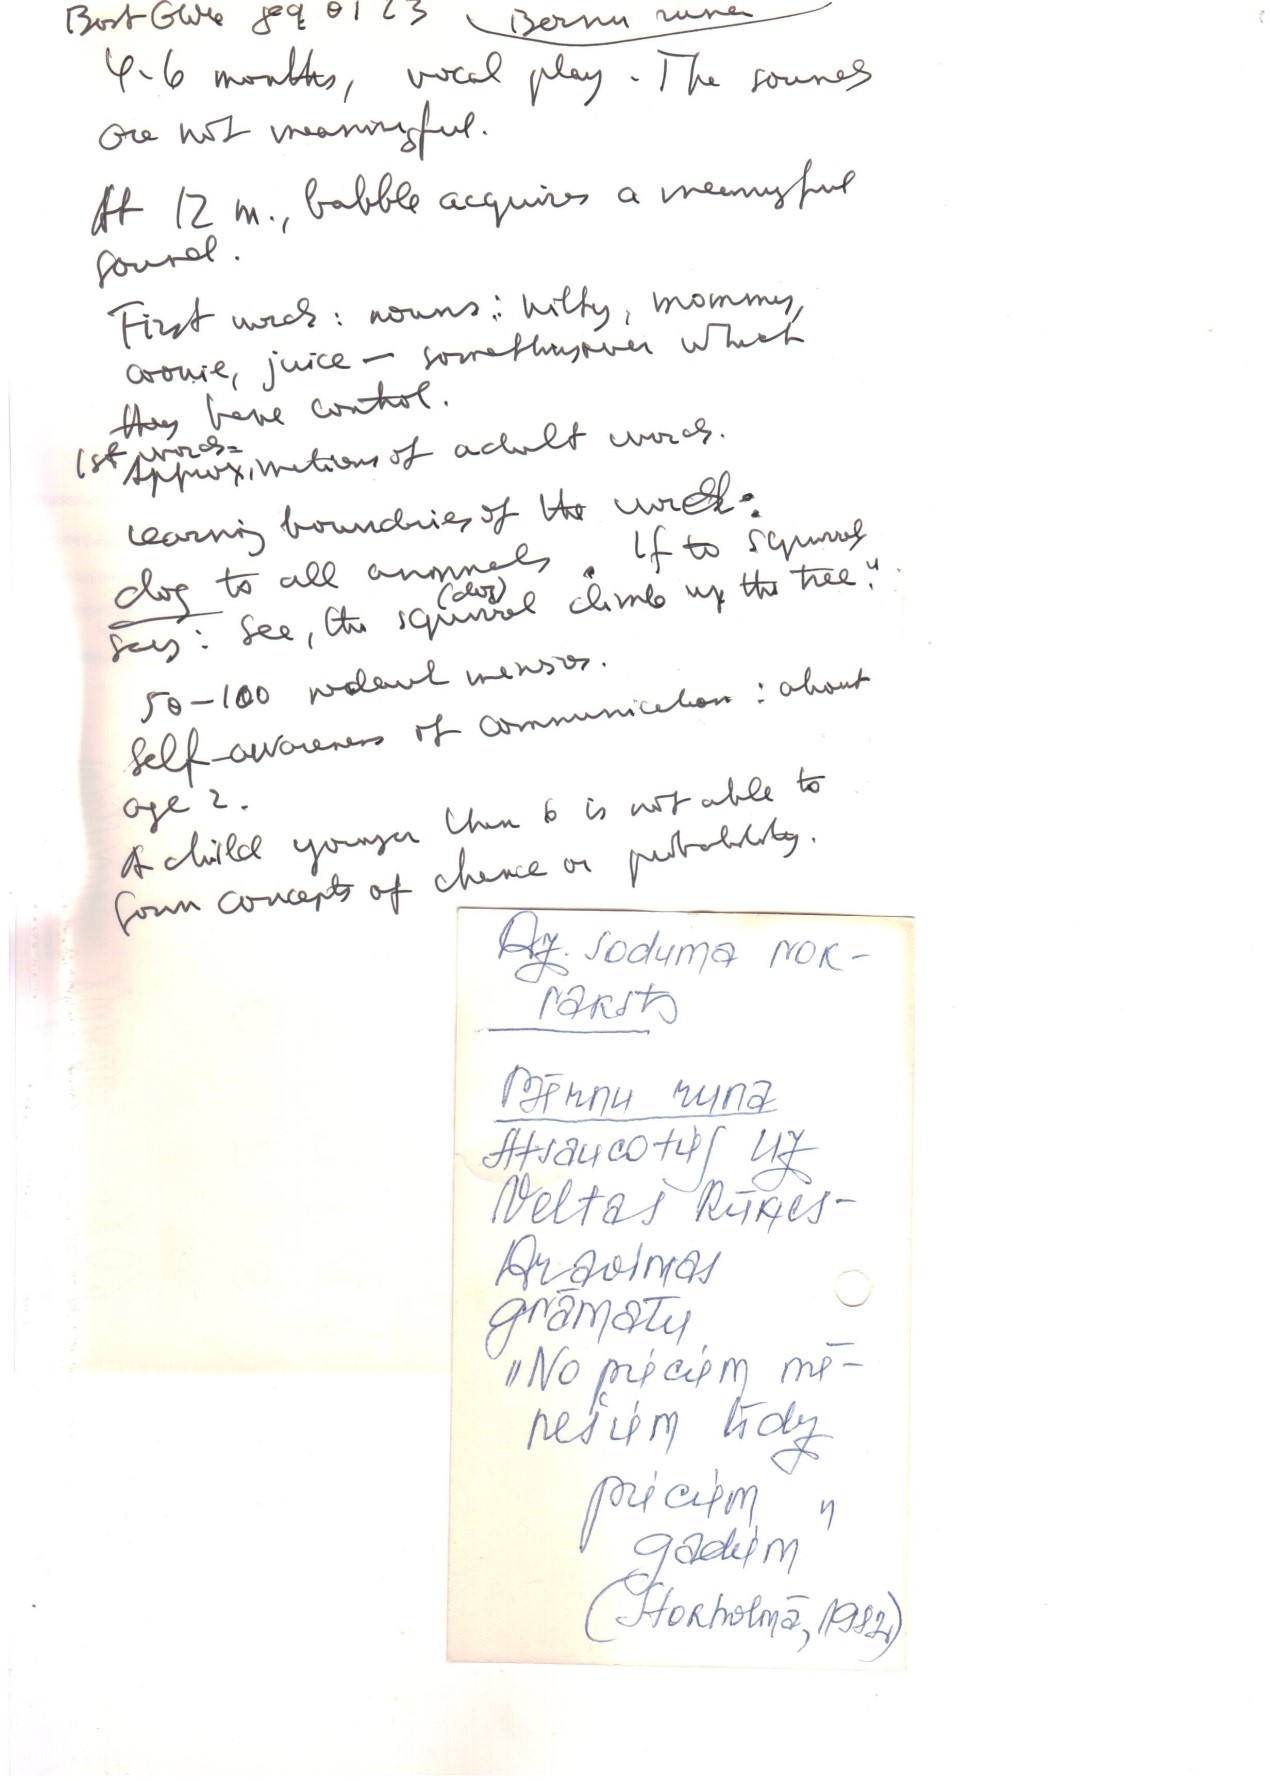 Bost Glwe Bērnu runa
4-6 months, vocal play. The sounds
are not meaningful.
At 12 m., babble acquires a meaningful
sound.
First words: nouns: kitty, mommy,
cookie, juice — something over which
they have control.
1st words =
Approximations of adult words.
Learning boundries of the words:
dog to all animals. If to squirrel
(dog)
says: See, the squirrel climb up the tree."
50-100
Self-awareness of communication: about
age 2.
A child younger than 6 is not able to
form concepts of chance or probability.
Az. soduma nok-
raksts
Bērnu runa
Atsaucoties uz
Veltas Rūķes-
Draviņas
grāmatu
"No pieciem mē-
nešiem līdz
pieciem
gadiem"
(Stokholmā, 1982)